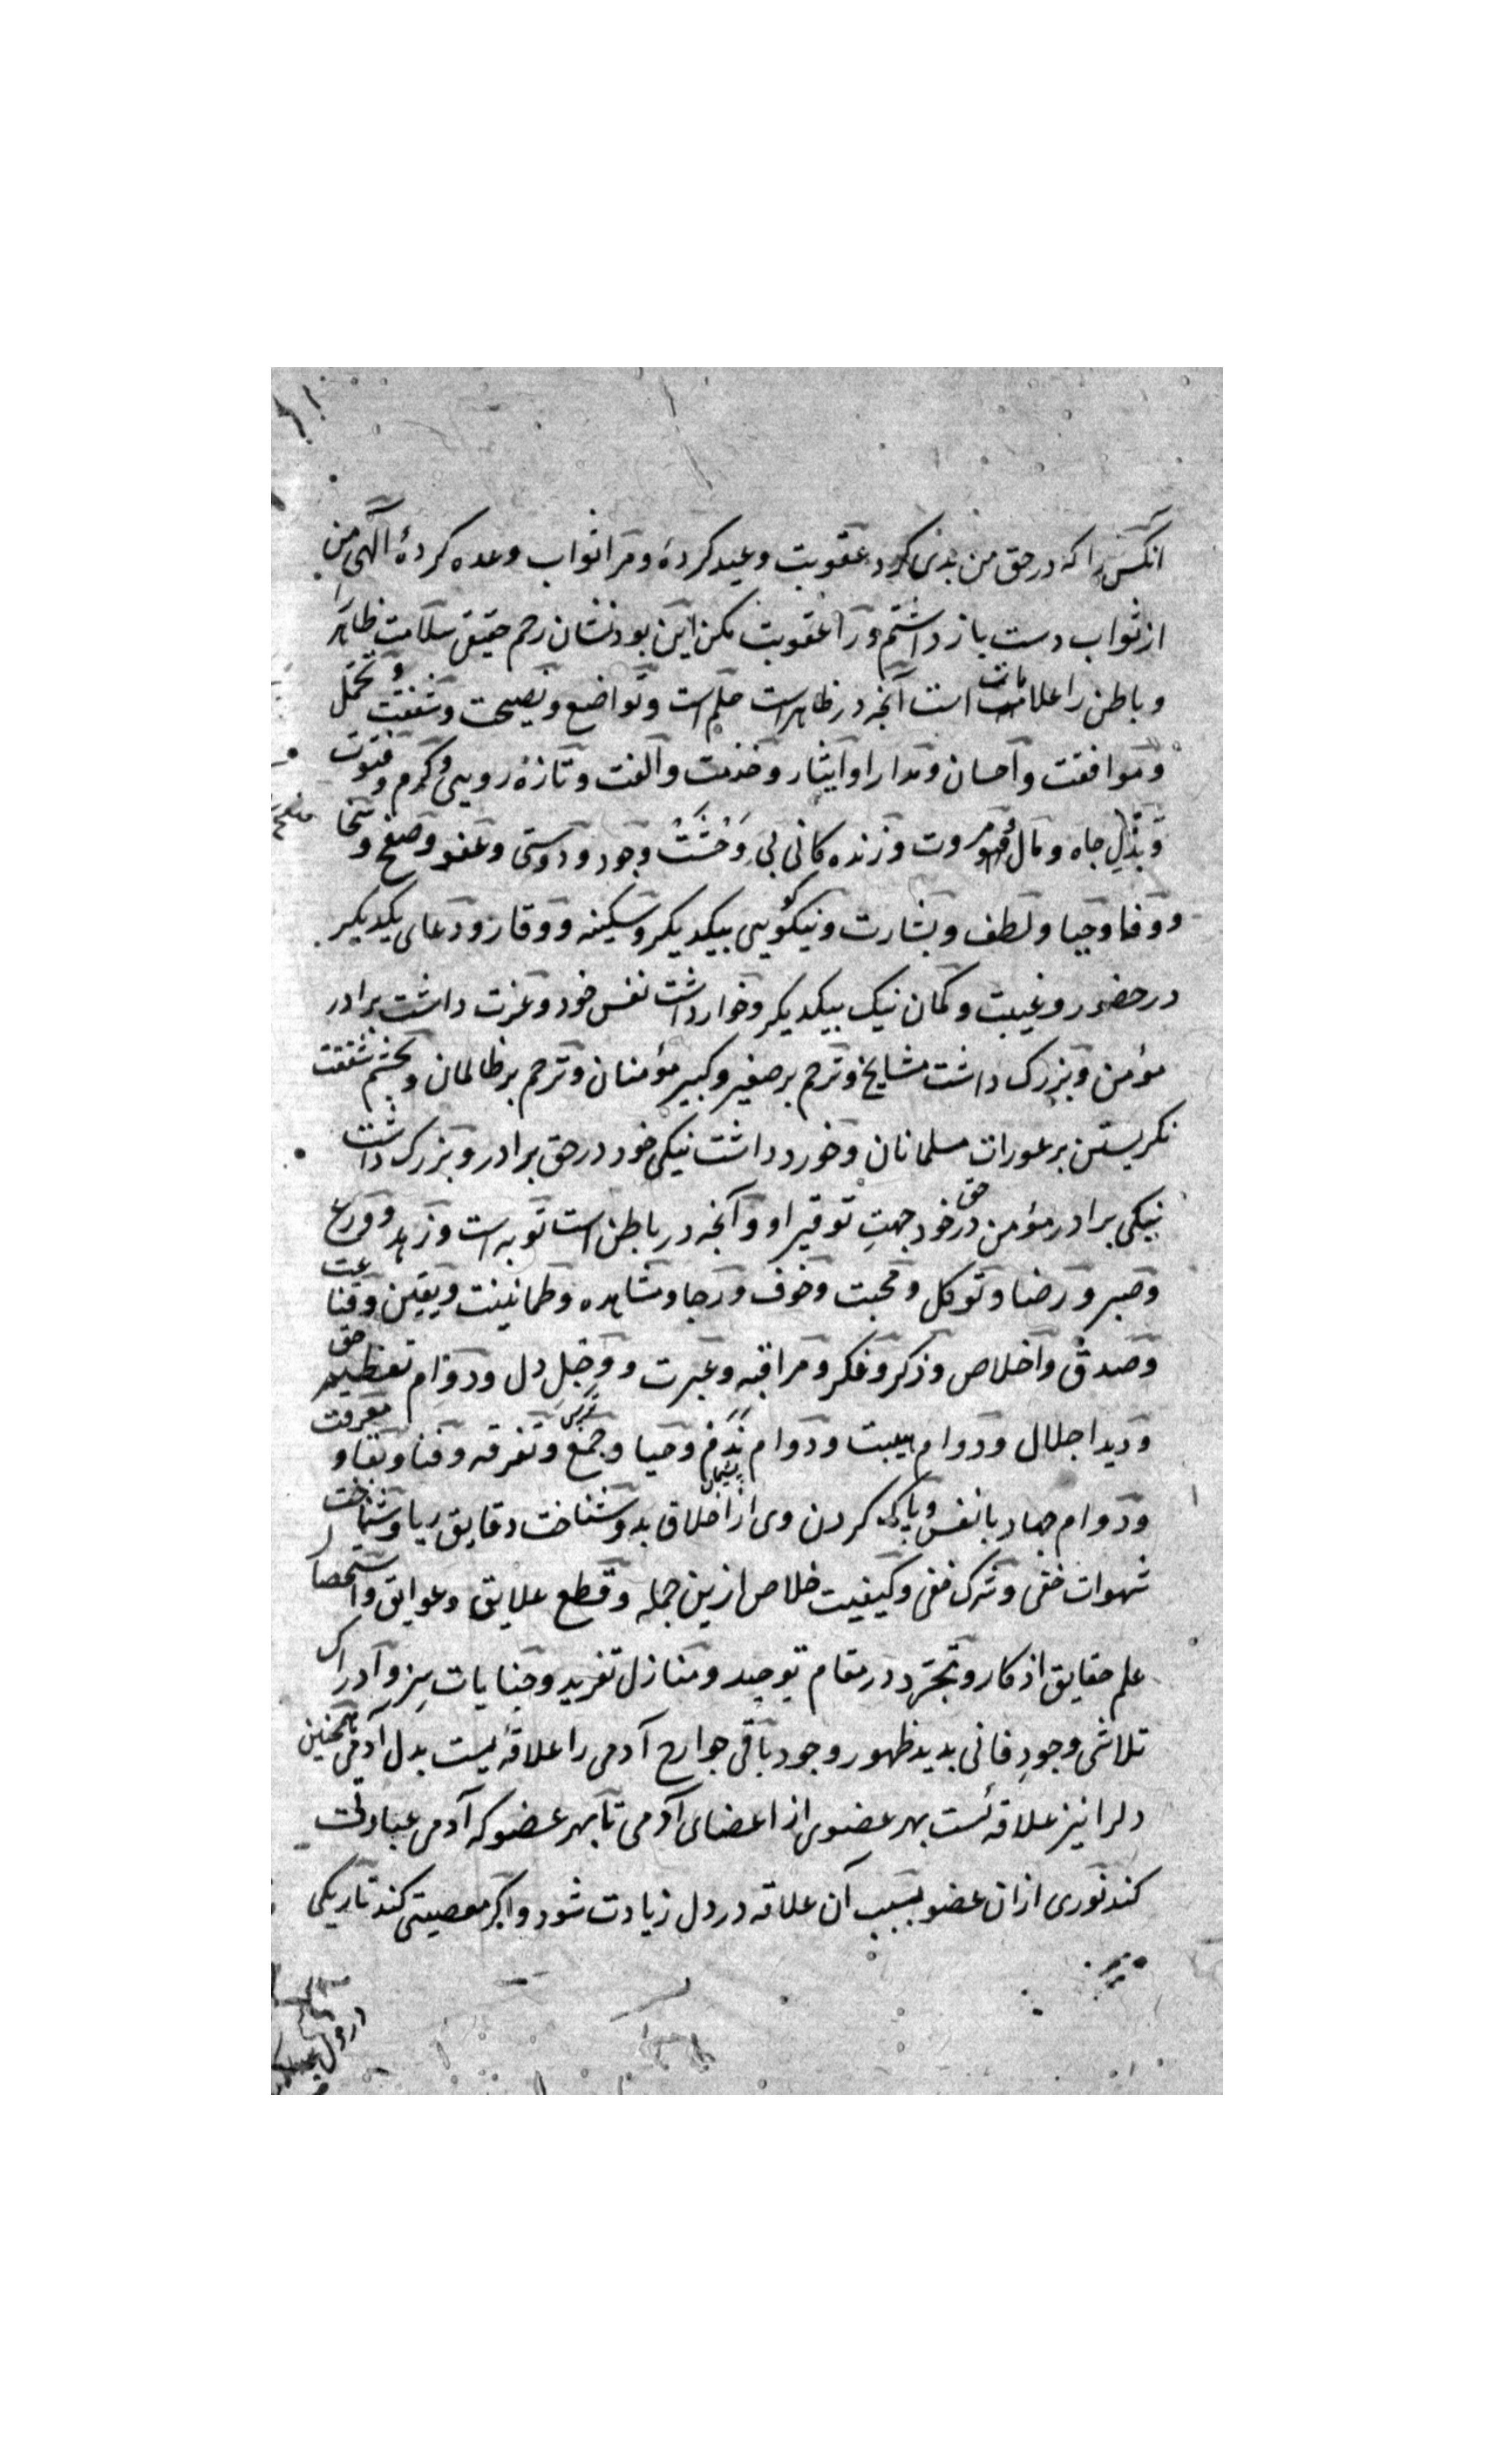 آنکس را که در حق من بدی کرد عقوبت وعید کردهٔ و مرا ثواب وعده کردهٔ الهی من
از ثواب دست باز داشتم ورا عقوبت مکن این بود نشان رحم حقیقی سلامت ظاهر را
و باطن را علامات است آنچه در ظاهر است حلم است و تواضع و نصیحت و شفقت و تحمل
و موافقت و احسان و مدارا و ایثار و خدمت و الفت و تازه رویی و کرم و فتوت
و بذلِ جاه و مال و مروت و زنده کانی بی وَحْشَتْ وجود و دوستی و عفو و صفح و سخا
و وفا و حیا و لطف و بشارت و نیکویی بیکدیکر و سکینه و وقار و دعای یکدیکر
در حضور و غیبت و کمان نیک بیکدیکر و خوارداشت نفس خود و عزت داشت برادر
مؤمن و بزرک داشت مشایخ و ترحم بر صغیر و کبیر مؤمنان و ترحم بر ظالمان و بچشم شفقت
نکریستن بر عورات مسلمانان و خورد داشت نیکی خود در حق برادر و بزرک داشت
نیکی برادر مؤمن در حق خود جهتِ توقیر او و آنچه در باطن است توبه است و زهد و ورع
و صبر و رضا و توکل و محبت و خوف و رجا و مشاهده و طمانینت و یقین و قناعت
و صدق و اخلاص و ذکر و فکر و مراقبه و عبرت و وجلِ دل و دوام تعظیم حق
و دید اجلال و دوام هیبت و دوام نَدَم و حیا و جمع و تفرقه و فنا و بقا و معرفت
پشیمانی
و دوام جهاد با نفس و پاک کردن وی از اخلاق بد و شناخت دقایق ریا و شناخت
شهوات خفی و شرک خفی و کیفیت خلاص ازین جمله و قطع علایق و عوایق و استحصار
علم حقایق اذکار و تجرّد در مقام توحید و منازل تفرید و جنایات سِر و ادراک
تلاشی وجودِ فانی بدید ظهور وجود باقی جوارح آدمی را علاقهٔ یست بدل آدمی همچنین
دلرا نیز علاقهٔ است بهر عضوی از اعضای آدمی تا بهر عضو که آدمی عبادت
کند نوری ازان عضو بسبب آن علاقه در دل زیادت شود و اکر معصیتی کند تاریکی